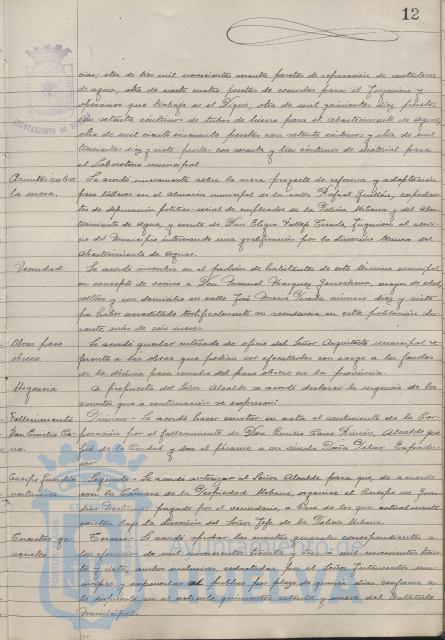 12
cias; otra de dos mil novecientas sesenta pesetas de reparación de contadores
de agua, otra de ciento cuatro pesetas de comidas para el Ingeniero y
operarios que trabaja en el Dique, otra de mil quinientas diez pesetas
con setenta céntimos de tubos de hierro para el Abastecimiento de agua,
otra de mil ciento cincuenta pesetas con setenta céntimos y otra de mil
trescientas diez y siete pesetas con cuarenta y cinco céntimos de material para
el Laboratorio municipal.
Asuntos sobre la mesa. Se acordó nuevamente sobre la mesa proyecto de reforma y adaptación
para talleres en el almacén municipal de la calle Rafael Guillén, expedien-
tes de depuración político-social de empleados de la Policía Urbana y del Abas-
tecimiento de Agua, y escrito de Don Eligio Ingeniero al servi-
cio del Municipio interesando una gratificación por la dirección técnica del
Abastecimiento de Aguas.
Vecindad Se acordó inscribir en el padrón de habitantes de este término municipal
en concepto de vecino a Don Manuel Márquez mayor de edad,
soltero y con domicilio en calle José María número diez y siete
por haber acreditado testificalmente su residencia en esta población du-
rante más de seis meses.
Obras paro obrero. Se acordó quedar enterado de oficio del Señor Arquitecto municipal re-
ferente a las obras que podían ser ejecutadas con cargo a los fondos
de la décima para remedio del paro obrero en la provincia.
Urgencia A propuesta del Señor Alcalde se acordó declarar la urgencia de los
asuntos que a continuación se expresan:
Fallecimiento Don Emilio Ca-no. Primero.- Se acordó hacer constar en acta el sentimiento de la Cor-
poración por el fallecimiento de Don Emilio Cano Rincón, Alcalde que
fué de la Ciudad y dar el pésame a su viuda Doña Pilar
Cuerpo guardias nocturnos Segundo.- Se acordó autorizar al Señor Alcalde para que, de acuerdo
con la Cámara de la Propiedad Urbana, organice el Cuerpo de Guar-
dias Nocturnos pagado por el vecindario, a base de los que actualmente
existen bajo la dirección del Señor Jefe de la Policía Urbana.
Cuentas ge-nerales Tercero.- Se acordó aprobar las cuentas generales correspondientes a
los ejercicios de mil novecientos treinta y mil novecientos trein-
ta y siete, ambos inclusives, redactadas por el Señor Interventor mu-
nicipal y exponerlas al público por plazo de quince días conforme a
lo dispuesto en el artículo quinientos setenta y nueve del Estatuto
Municipal.
AYUNTAMIENTO DE HUELVA
Ayuntamiento de
HUELVA